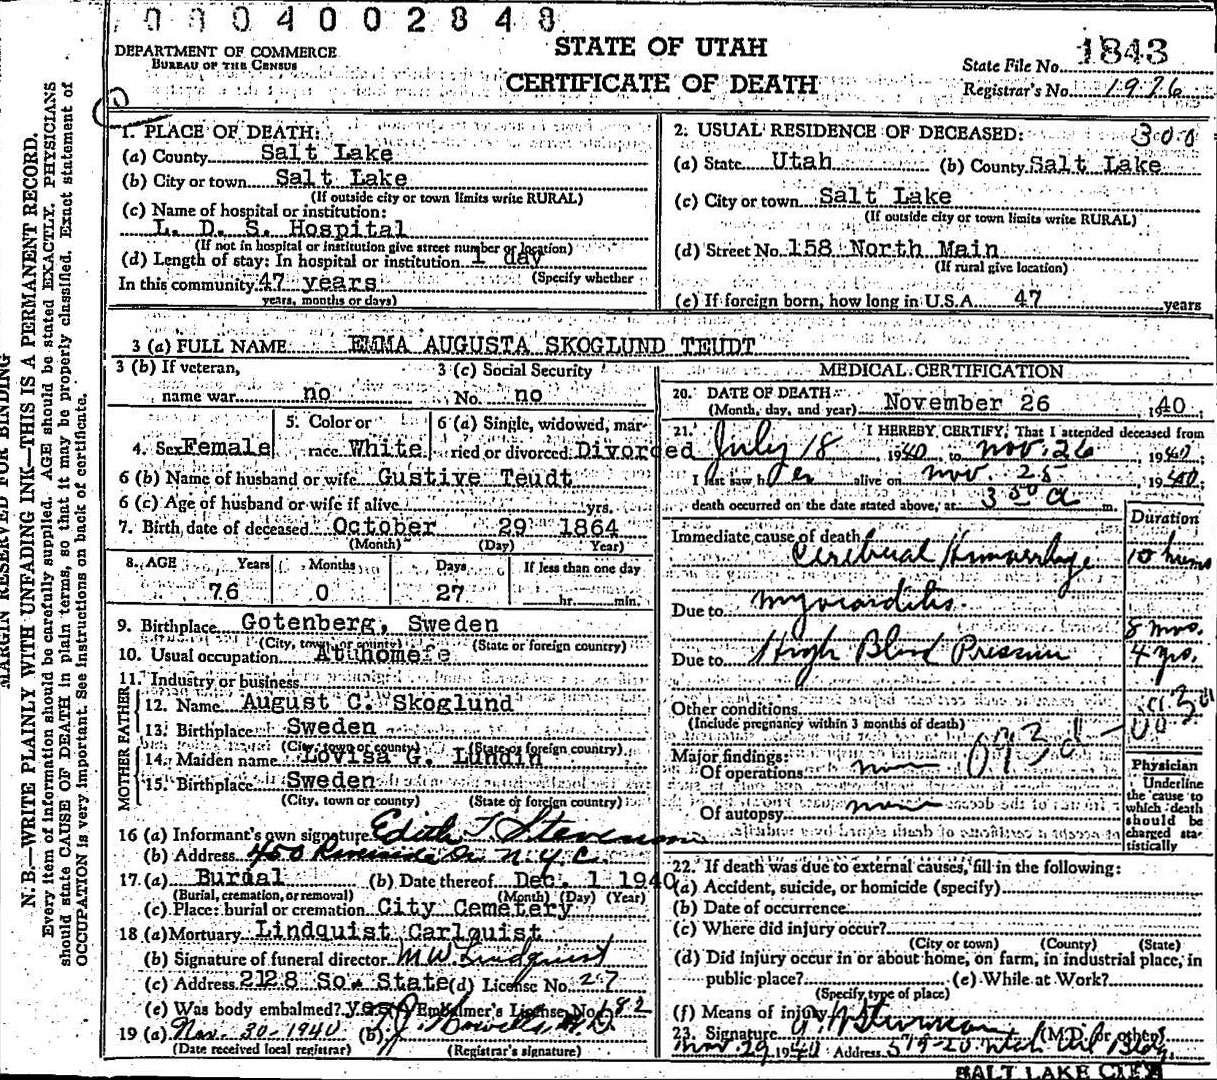 0004002848
DEPARTMENT OF COMMERCE
BUREAU OF THE CENSUS
STATE OF UTAH
CERTIFICATE OF DEATH
State File No. 1843
Registrar's No. 1976
MARGIN RESERVED FOR BINDING
N. B.—WRITE PLAINLY WITH UNFADING INK—THIS IS A PERMANENT RECORD.
Every item of information should be carefully supplied. AGE should be stated EXACTLY. PHYSICIANS
should state CAUSE OF DEATH in plain terms, so that it may be properly classified. Exact statement of
OCCUPATION is very important. See instructions on back of certificate.
1. PLACE OF DEATH:
(a) County Salt Lake
(b) City or town Salt Lake
(If outside city or town limits write RURAL)
(c) Name of hospital or institution:
L. D. S. Hospital
(If not in hospital or institution give street number or location)
(d) Length of stay: In hospital or institution 1 day
(Specify whether
In this community 47 years
years, months or days)
2. USUAL RESIDENCE OF DECEASED: 300
(a) State Utah (b) County Salt Lake
(c) City or town Salt Lake
(If outside city or town limits write RURAL)
(d) Street No. 158 North Main
(If rural give location)
(e) If foreign born, how long in U.S.A. 47 years
3 (a) FULL NAME EMMA AUGUSTA SKOGLUND TEUDT
3 (b) If veteran,
name war no
3 (c) Social Security
No. no
4. Sex Female
5. Color or
race White
6 (a) Single, widowed, mar-
ried or divorced Divorced
6 (b) Name of husband or wife Gustive Teudt
6 (c) Age of husband or wife if alive yrs.
7. Birth date of deceased October 29 1864
(Month) (Day) Year)
8. AGE Years Months Days If less than one day
76 0 27 hr. min.
9. Birthplace Gotenberg, Sweden
(City, town or county) (State or foreign country)
10. Usual occupation
11. Industry or business
FATHER
12. Name August C. Skoglund
13. Birthplace Sweden
(City, town or county) (State or foreign country)
MOTHER
14. Maiden name Lovisa G. Lundin
15. Birthplace Sweden
(City, town or county) (State or foreign country)
16 (a) Informant's own signature Edith T Stevenson
(b) Address 450 Riverside Dr. N.Y.C.
17. (a) Burial (b) Date thereof Dec. 1 1940
(Burial, cremation, or removal) (Month) (Day) (Year)
(c) Place: burial or cremation City Cemetery
18 (a) Mortuary Lindquist Carlquist
(b) Signature of funeral director M.W. Lindquist
(c) Address 2128 So. State (d) License No. 27
(e) Was body embalmed? Yes Embalmer's License No. 182
19 (a) Nov. 30-1940 (b)
(Date received local registrar) (Registrar's signature)
MEDICAL CERTIFICATION
20. DATE OF DEATH:
(Month, day, and year) November 26, 1940
21. I HEREBY CERTIFY, That I attended deceased from
July 18 1940 to Nov. 26 1940
I last saw her alive on Nov. 25 1940;
death occurred on the date stated above, at 3 50 a m.
Duration
Immediate cause of death
Cerebral Hemorrhage 10 hours
Due to Myocarditis. 8 mos.
Due to High Blood Pressure 4 yrs.
Other conditions
(Include pregnancy within 3 months of death)
Major findings:
Of operations none
Of autopsy none
Physician
Underline
the cause to
which death
should be
charged sta-
tistically
22. If death was due to external causes, fill in the following:
(a) Accident, suicide, or homicide (specify)
(b) Date of occurrence
(c) Where did injury occur?
(City or town) (County) (State)
(d) Did injury occur in or about home, on farm, in industrial place, in
public place? (e) While at Work?
(Specify type of place)
(f) Means of injury
23. Signature (M.D. or other)
Nov. 29, 1940 Address 519-20 Utah Oil Bldg.
SALT LAKE CITY